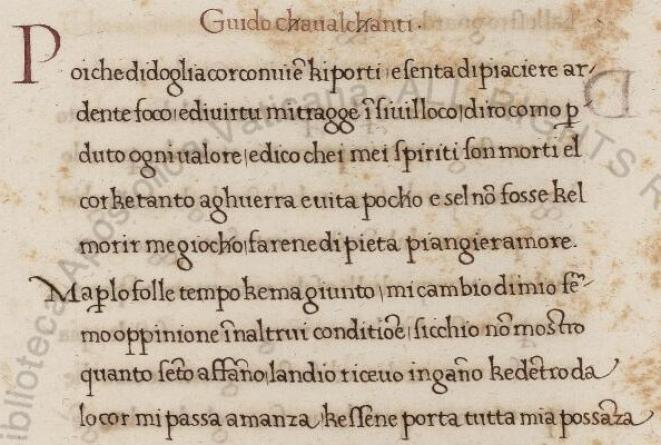 Guido chaualchanti.
Poiche di doglia cor conuiē ki porti e senta di piaciere ar
dente foco e di uirtu mi tragge ī si uil loco diro como p̱
duto ogni ualore e dico che i mei spiriti son morti el
cor ke tanto a ghuerra e uita pocho e sel nō fosse kel
morir me giocho farene di pieta piangier amore.
Ma p̱ lo folle tempo ke ma giunto mi cambio di mio fē
mo oppinione īn altrui conditiōe sicchio nō mostro
quanto sēto affāno land io riceuo ingāno ke dētro da
lo cor mi passa amanza kessene porta tutta mia possāza